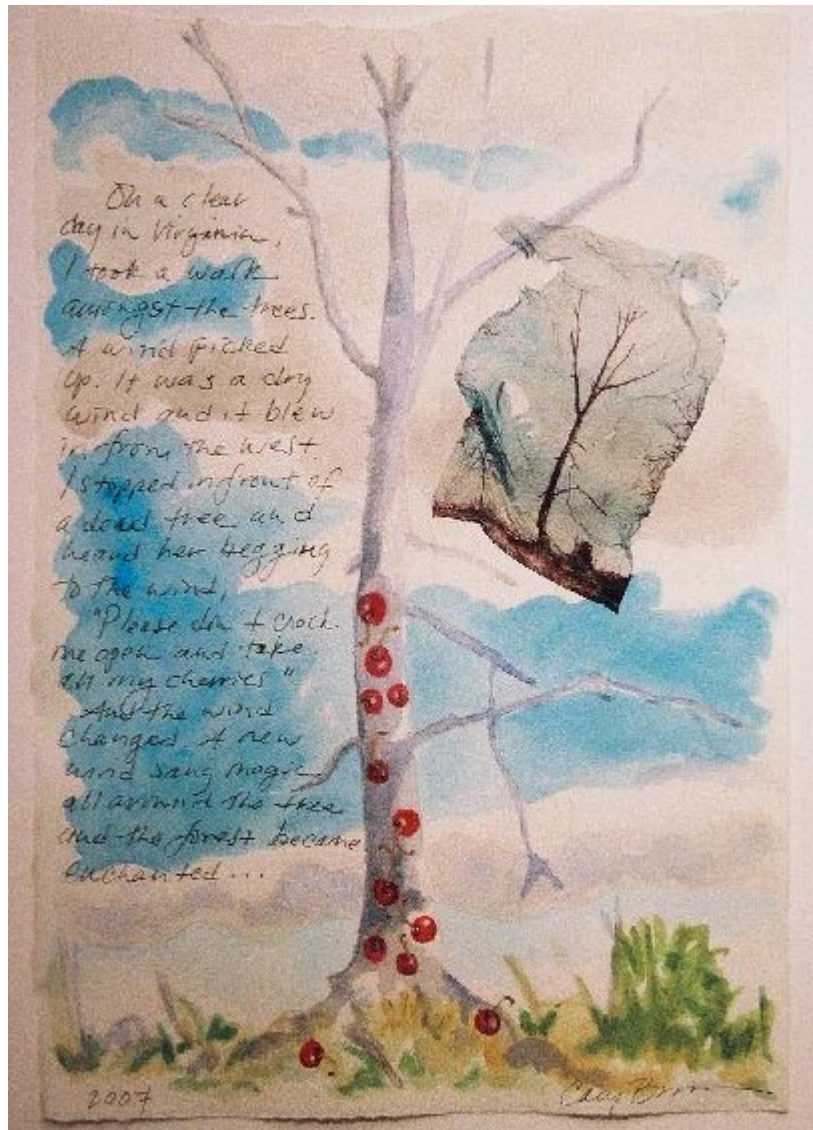 On a clear
day in Virginia,
I took a walk
amongst the trees.
A wind picked
up. It was a dry
wind and it blew
in from the west.
I stopped in front of
a dead tree and
heard her begging
to the wind,
"Please don't crack
me open and take
all my cherries"
And the wind
changed. A new
wind sang magic
all around the tree
and the forest became
enchanted...
2007